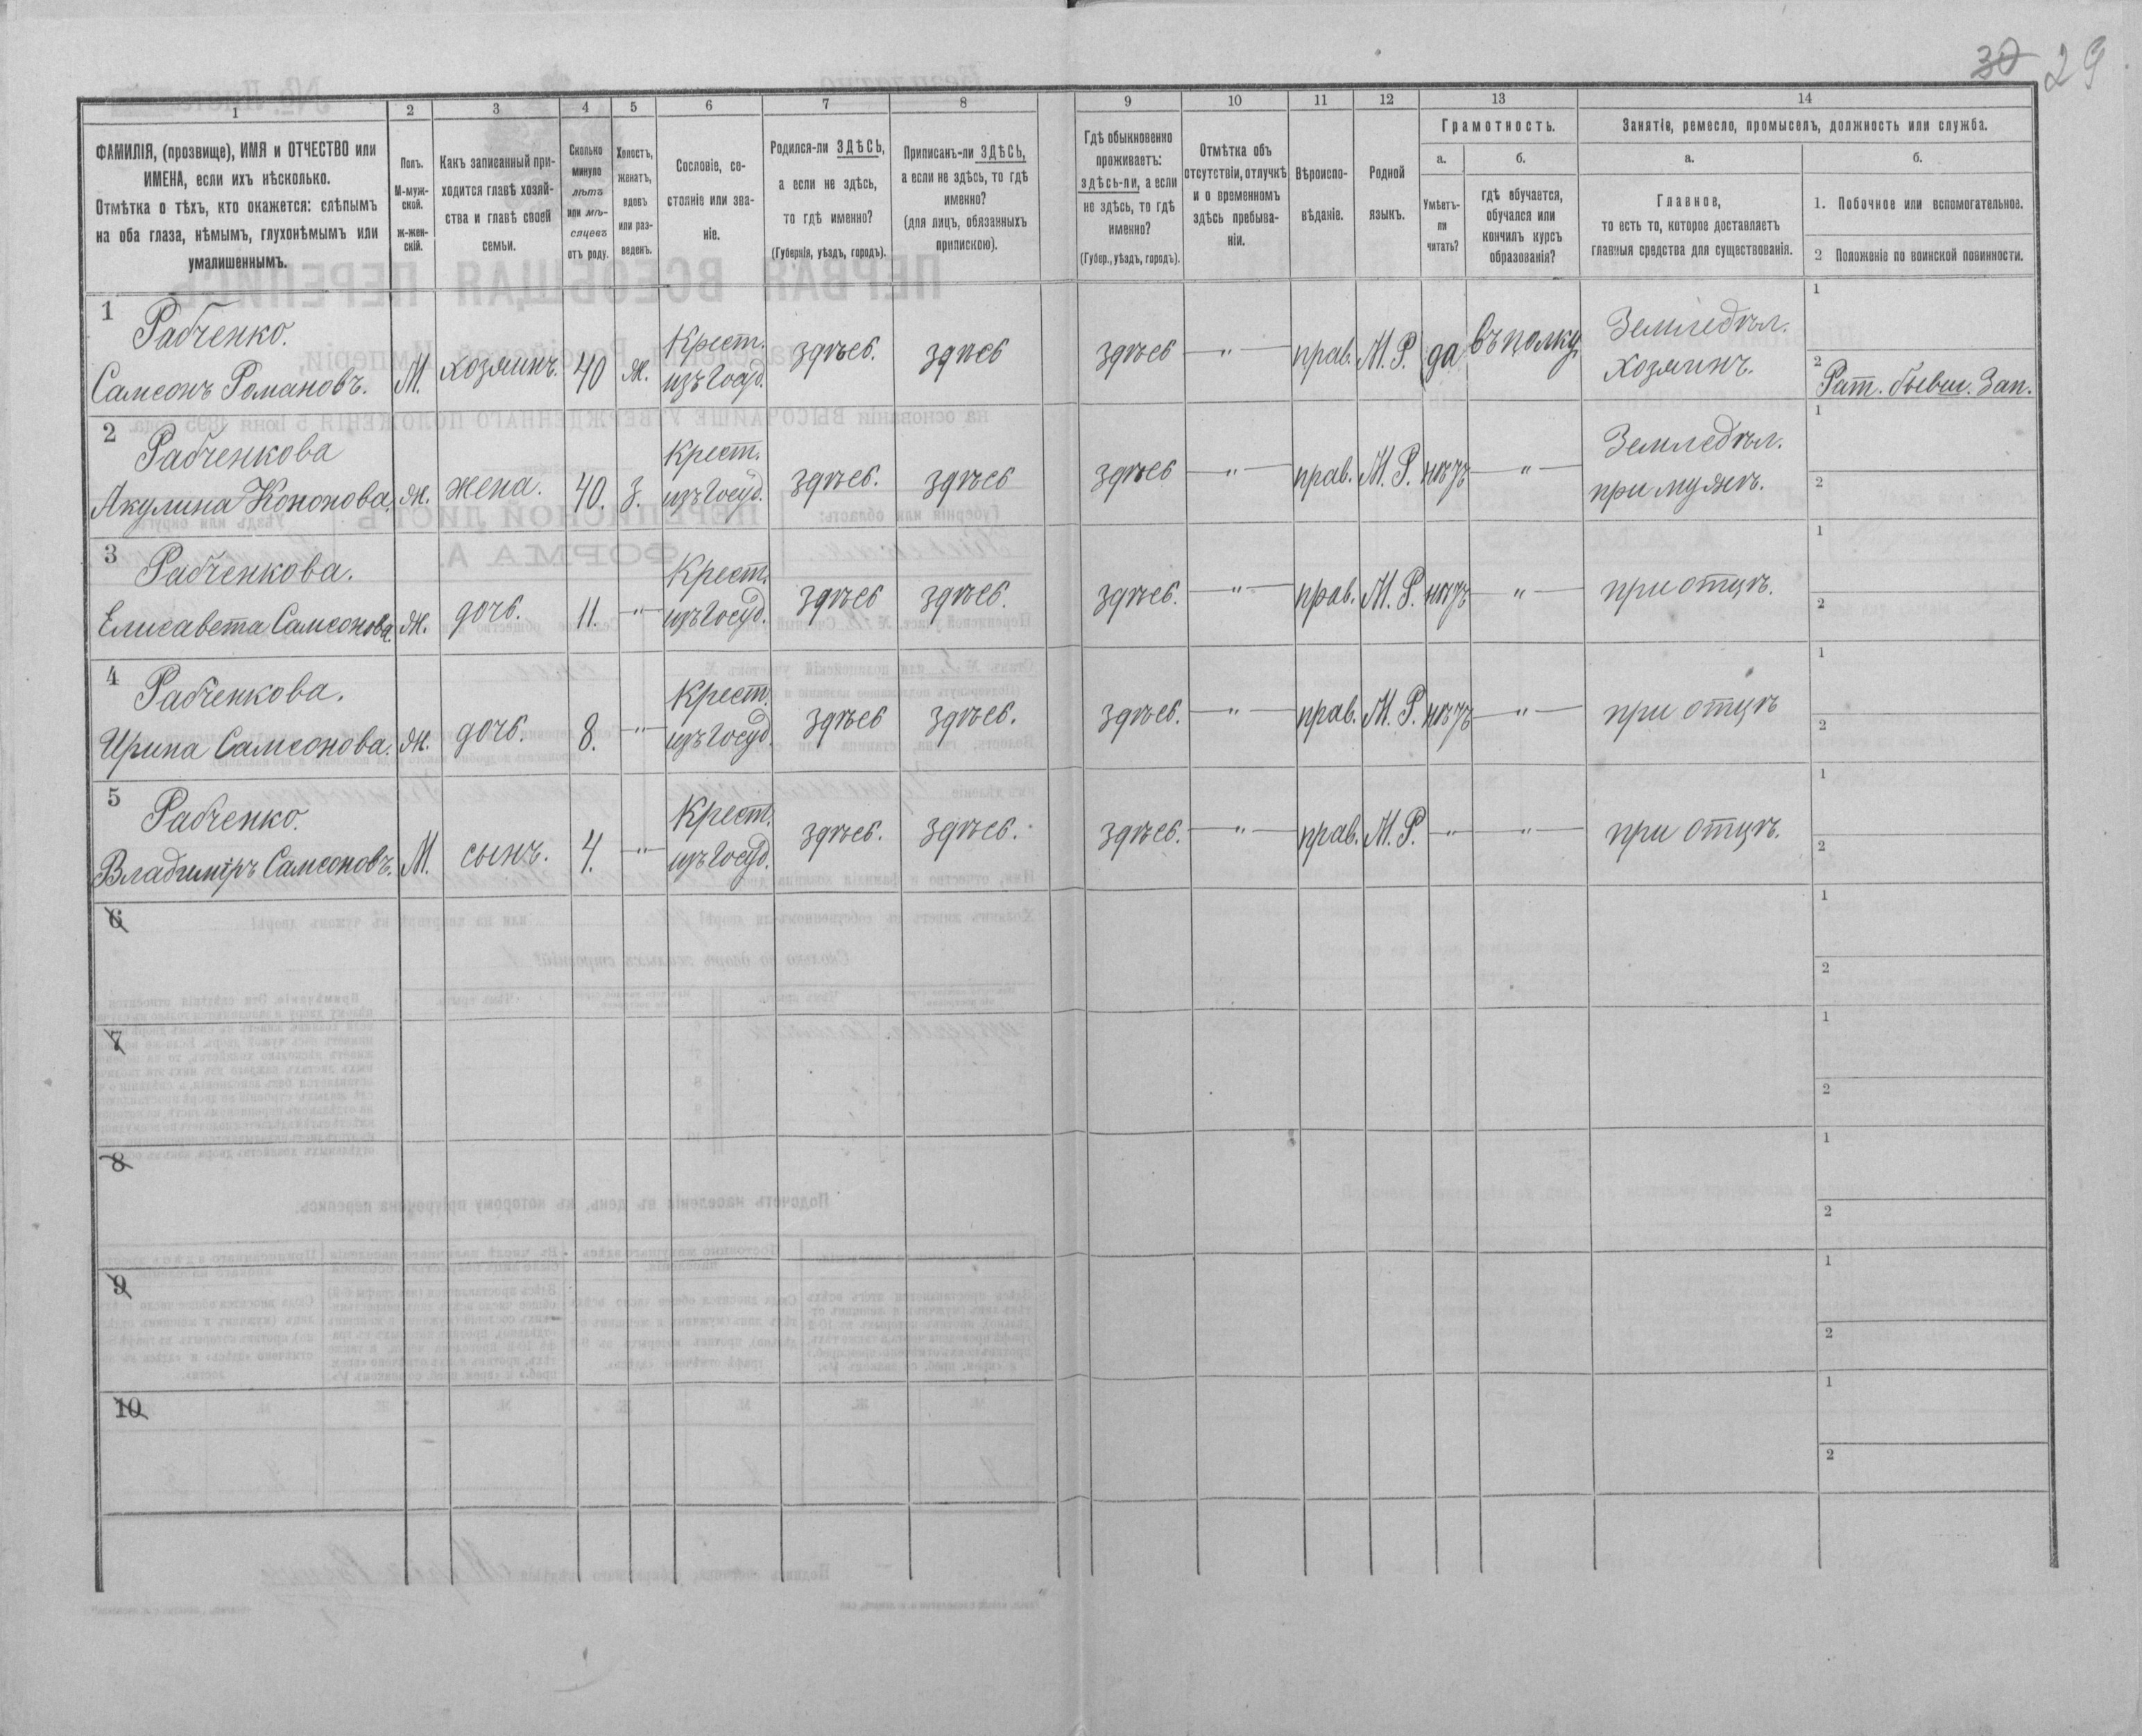 30 29
1 2 3 4 5 6 7 8 9 10 11 12 13 14
ФАМИЛІЯ, (прозвище), ИМЯ и ОТЧЕСТВО или
ИМЕНА, если ихъ нѣсколько.
Отмѣтка о тѣхъ, кто окажется: слѣпымъ
на оба глаза, нѣмымъ, глухонѣмымъ или
умалишеннымъ.
Полъ.
М-муж-
ской.
ж-жен-
скій.
Какъ записанный при-
ходится главѣ хозяй-
ства и главѣ своей
семьи.
Сколько
минуло
лѣтъ
или мѣ-
сяцевъ
отъ роду.
Холостъ,
женатъ,
вдовъ
или раз-
веденъ.
Сословіе, со-
стояніе или зва-
ніе.
Родился-ли ЗДѢСЬ,
а если не здѣсь,
то гдѣ именно?
(Губернія, уѣздъ, городъ).
Приписанъ-ли ЗДѢСЬ,
а если не здѣсь, то гдѣ
именно?
(для лицъ, обязанныхъ
припискою).
Гдѣ обыкновенно
проживаетъ:
здѣсь-ли, а если
не здѣсь, то гдѣ
именно?
(Губер., уѣздъ, городъ).
Отмѣтка объ
отсутствіи, отлучкѣ
и о временномъ
здѣсь пребыва-
ніи.
Вѣроиспо-
вѣданіе.
Родной
языкъ.
Грамотность.
а.
Умѣетъ-
ли
читать?
б.
гдѣ обучается,
обучался или
кончилъ курсъ
образованія?
Занятіе, ремесло, промыселъ, должность или служба.
а.
Главное,
то есть то, которое доставляетъ
главныя средства для существованія.
б.
1. Побочное или вспомогательное.
2 Положеніе по воинской повинности.
1
Рабченко.
Самсонъ Романовъ. М. хозяинъ. 40 ж.
Крест.
изъ Госуд.
здѣсь. здѣсь здѣсь — " — прав. М. Р. да въ полку
Земледѣл.
Хозяинъ.
1
2
Рат. бывш. Зап.
2
Рабченкова
Акулина Кононова. ж. жена. 40. З.
Крест.
изъ Госуд.
здѣсь. здѣсь здѣсь — " — прав. М. Р. нѣтъ — " —
Земледѣл.
при мужѣ.
1
2
3
Рабченкова.
Елисавета Самсонова. ж. дочь. 11. — " —
Крест.
изъ Госуд.
здѣсь здѣсь. здѣсь. — " — прав. М. Р. нѣтъ — " — при отцѣ.
1
2
4
Рабченкова.
Ирина Самсонова. ж. дочь. 8. — " —
Крест.
изъ Госуд.
здѣсь здѣсь. здѣсь. — " — прав. М. Р. нѣтъ — " — при отцѣ
1
2
5
Рабченко.
Владиміръ Самсоновъ. М. сынъ. 4. — " —
Крест.
изъ Госуд.
здѣсь. здѣсь. здѣсь. — " — прав. М. Р. — " — — " — при отцѣ.
1
2
6
1
2
7
1
2
8
1
2
9
1
2
10
1
2